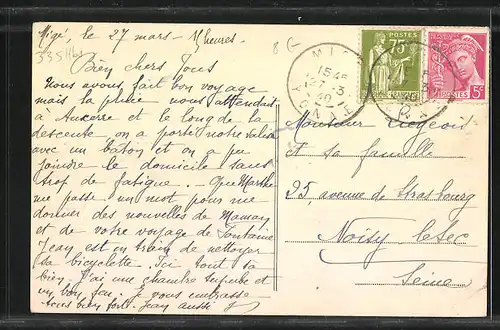 Migé, le 27 mars - 11 heures -
335 Hbs
8 G
Bien chers Tous
Nous avons fait bon voyage
mais la pluie nous attendait
à Auxerre et le long de la
descente on a porté notre valise
avec un baton et on a pu
joindre le domicile sans
trop de fatigue. - Que Marthe
me passe un mot pour me
donner des nouvelles de Maman
et de votre voyage de Fontaine
Jean est en train de nettoyer
sa bicyclette. Ici tout va
bien j'ai une chambre superbe et
un bon feu. Je vous embrasse
tous bien fort. Jean aussi
MIGÉ
15 45
27 - 3
40
YONNE
POSTES
75c
FRANÇAISE
POSTES
5c
Monsieur
et sa famille
25 avenue de Strasbourg
Noisy le Sec
Seine